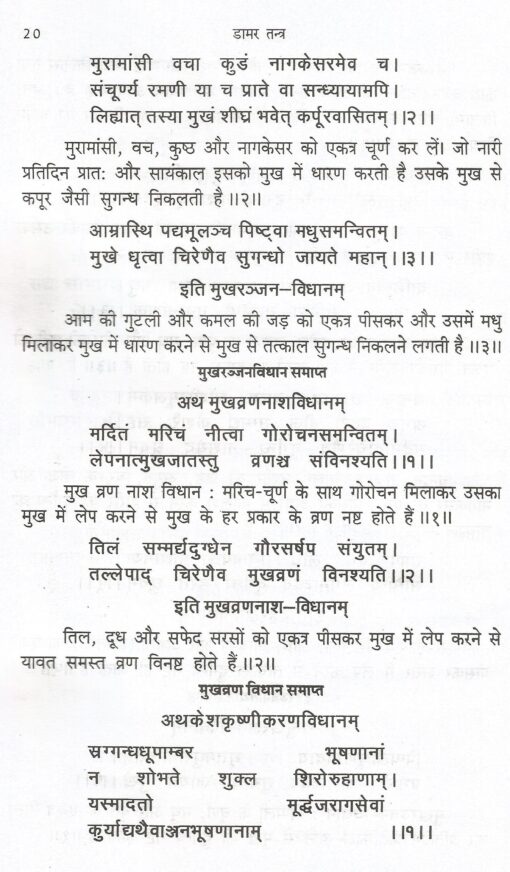 20 डामर तन्त्र
मुरामांसी वचा कुडं नागकेसरमेव च।
संचूर्ण्य रमणी या च प्राते वा सन्ध्यायामपि।
लिह्यात् तस्या मुखं शीघ्रं भवेत् कर्पूरवासितम्॥२॥
मुरामांसी, वच, कुष्ठ और नागकेसर को एकत्र चूर्ण कर लें। जो नारी
प्रतिदिन प्रात: और सायंकाल इसको मुख में धारण करती है उसके मुख से
कपूर जैसी सुगन्ध निकलती है॥२॥
आम्रास्थि पद्यमूलञ्च पिष्ट्वा मधुसमन्वितम्।
मुखे धृत्वा चिरेणैव सुगन्धो जायते महान्॥३॥
इति मुखरञ्जन–विधानम्
आम की गुटली और कमल की जड़ को एकत्र पीसकर और उसमें मधु
मिलाकर मुख में धारण करने से मुख से तत्काल सुगन्ध निकलने लगती है॥३॥
मुखरञ्जनविधान समाप्त
अथ मुखव्रणनाशविधानम्
मर्दितं मरिचं नीत्वा गोरोचनसमन्वितम्।
लेपनात्मुखजातस्तु व्रणश्च संविनश्यति॥१॥
मुख व्रण नाश विधान : मरिच-चूर्ण के साथ गोरोचन मिलाकर उसका
मुख में लेप करने से मुख के हर प्रकार के व्रण नष्ट होते हैं॥१॥
तिलं सम्मर्द्यदुग्धेन गौरसर्षप संयुतम्।
तल्लेपाद् चिरेणैव मुखव्रणं विनश्यति॥२॥
इति मुखव्रणनाश–विधानम्
तिल, दूध और सफेद सरसों को एकत्र पीसकर मुख में लेप करने से
यावत समस्त व्रण विनष्ट होते हैं॥२॥
मुखव्रण विधान समाप्त
अथकेशकृष्णीकरणविधानम्
स्रग्गन्धधूपाम्बर भूषणानां
न शोभते शुक्ल शिरोरुहाणाम्।
यस्मादतो मूर्द्धजरागसेवां
कुर्याद्यथैवाञ्जनभूषणानाम् ॥१॥